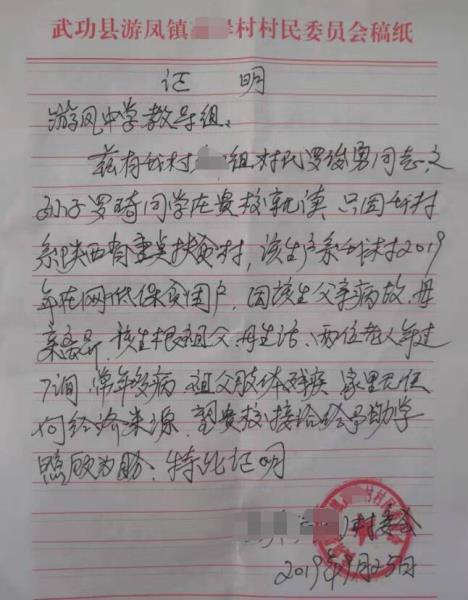 武功县游凤镇 村村民委员会稿纸
证 明
游凤中学教导组：
兹有我村 组村民罗俊勇同志，之
孙子罗琦同学在贵校就读，只因我村
系陕西省重点扶贫村，该生户系我村2019
年在网低保贫困户，因该生父亲病故，母
亲 ，该生根祖父母生活，两位老人年过
7旬，常年多病，祖父肢体残疾，家里无任
何经济来源，望贵校接洽给予助学
照顾为盼，特此证明
村委会
2019年9月25日